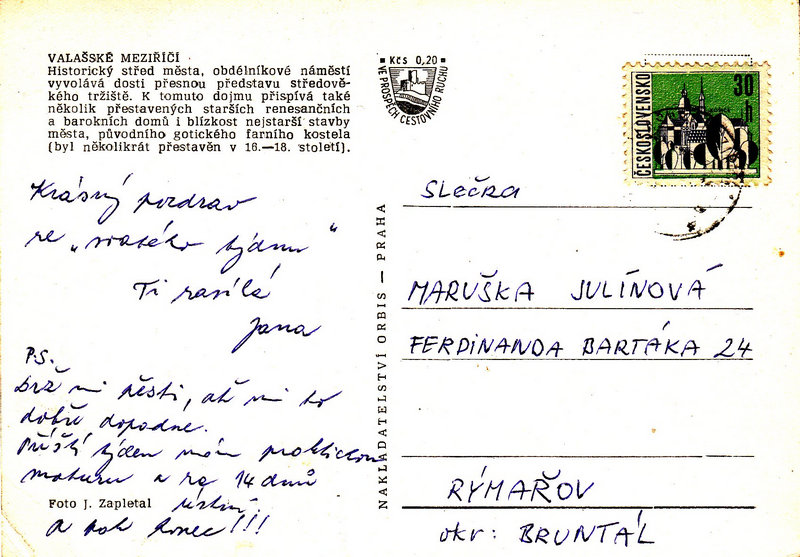 VALAŠSKÉ MEZIŘÍČÍ
Historický střed města, obdélníkové náměstí
vyvolává dosti přesnou představu středově-
kého tržiště. K tomuto dojmu přispívá také
několik přestavených starších renesančních
a barokních domů i blízkost nejstarší stavby
města, původního gotického farního kostela
(byl několikrát přestavěn v 16.—18. století).
Krásný pozdrav
ze „svatého týdnu“
Ti zasílá
Jana
P.S.
Drž mi pěsti, ať mi to
dobře dopadne.
Příští týden mám praktickou
maturu a za 14 dnů
ústní.
a pak konec!!!
Foto J. Zapletal
Kčs 0,20
VE PROSPĚCH CESTOVNÍHO RUCHU
NAKLADATELSTVÍ ORBIS — PRAHA
ČESKOSLOVENSKO
30 h
SLEČNA
MARUŠKA JULÍNOVÁ
FERDINANDA BARTÁKA 24
RÝMAŘOV
okr: BRUNTÁL